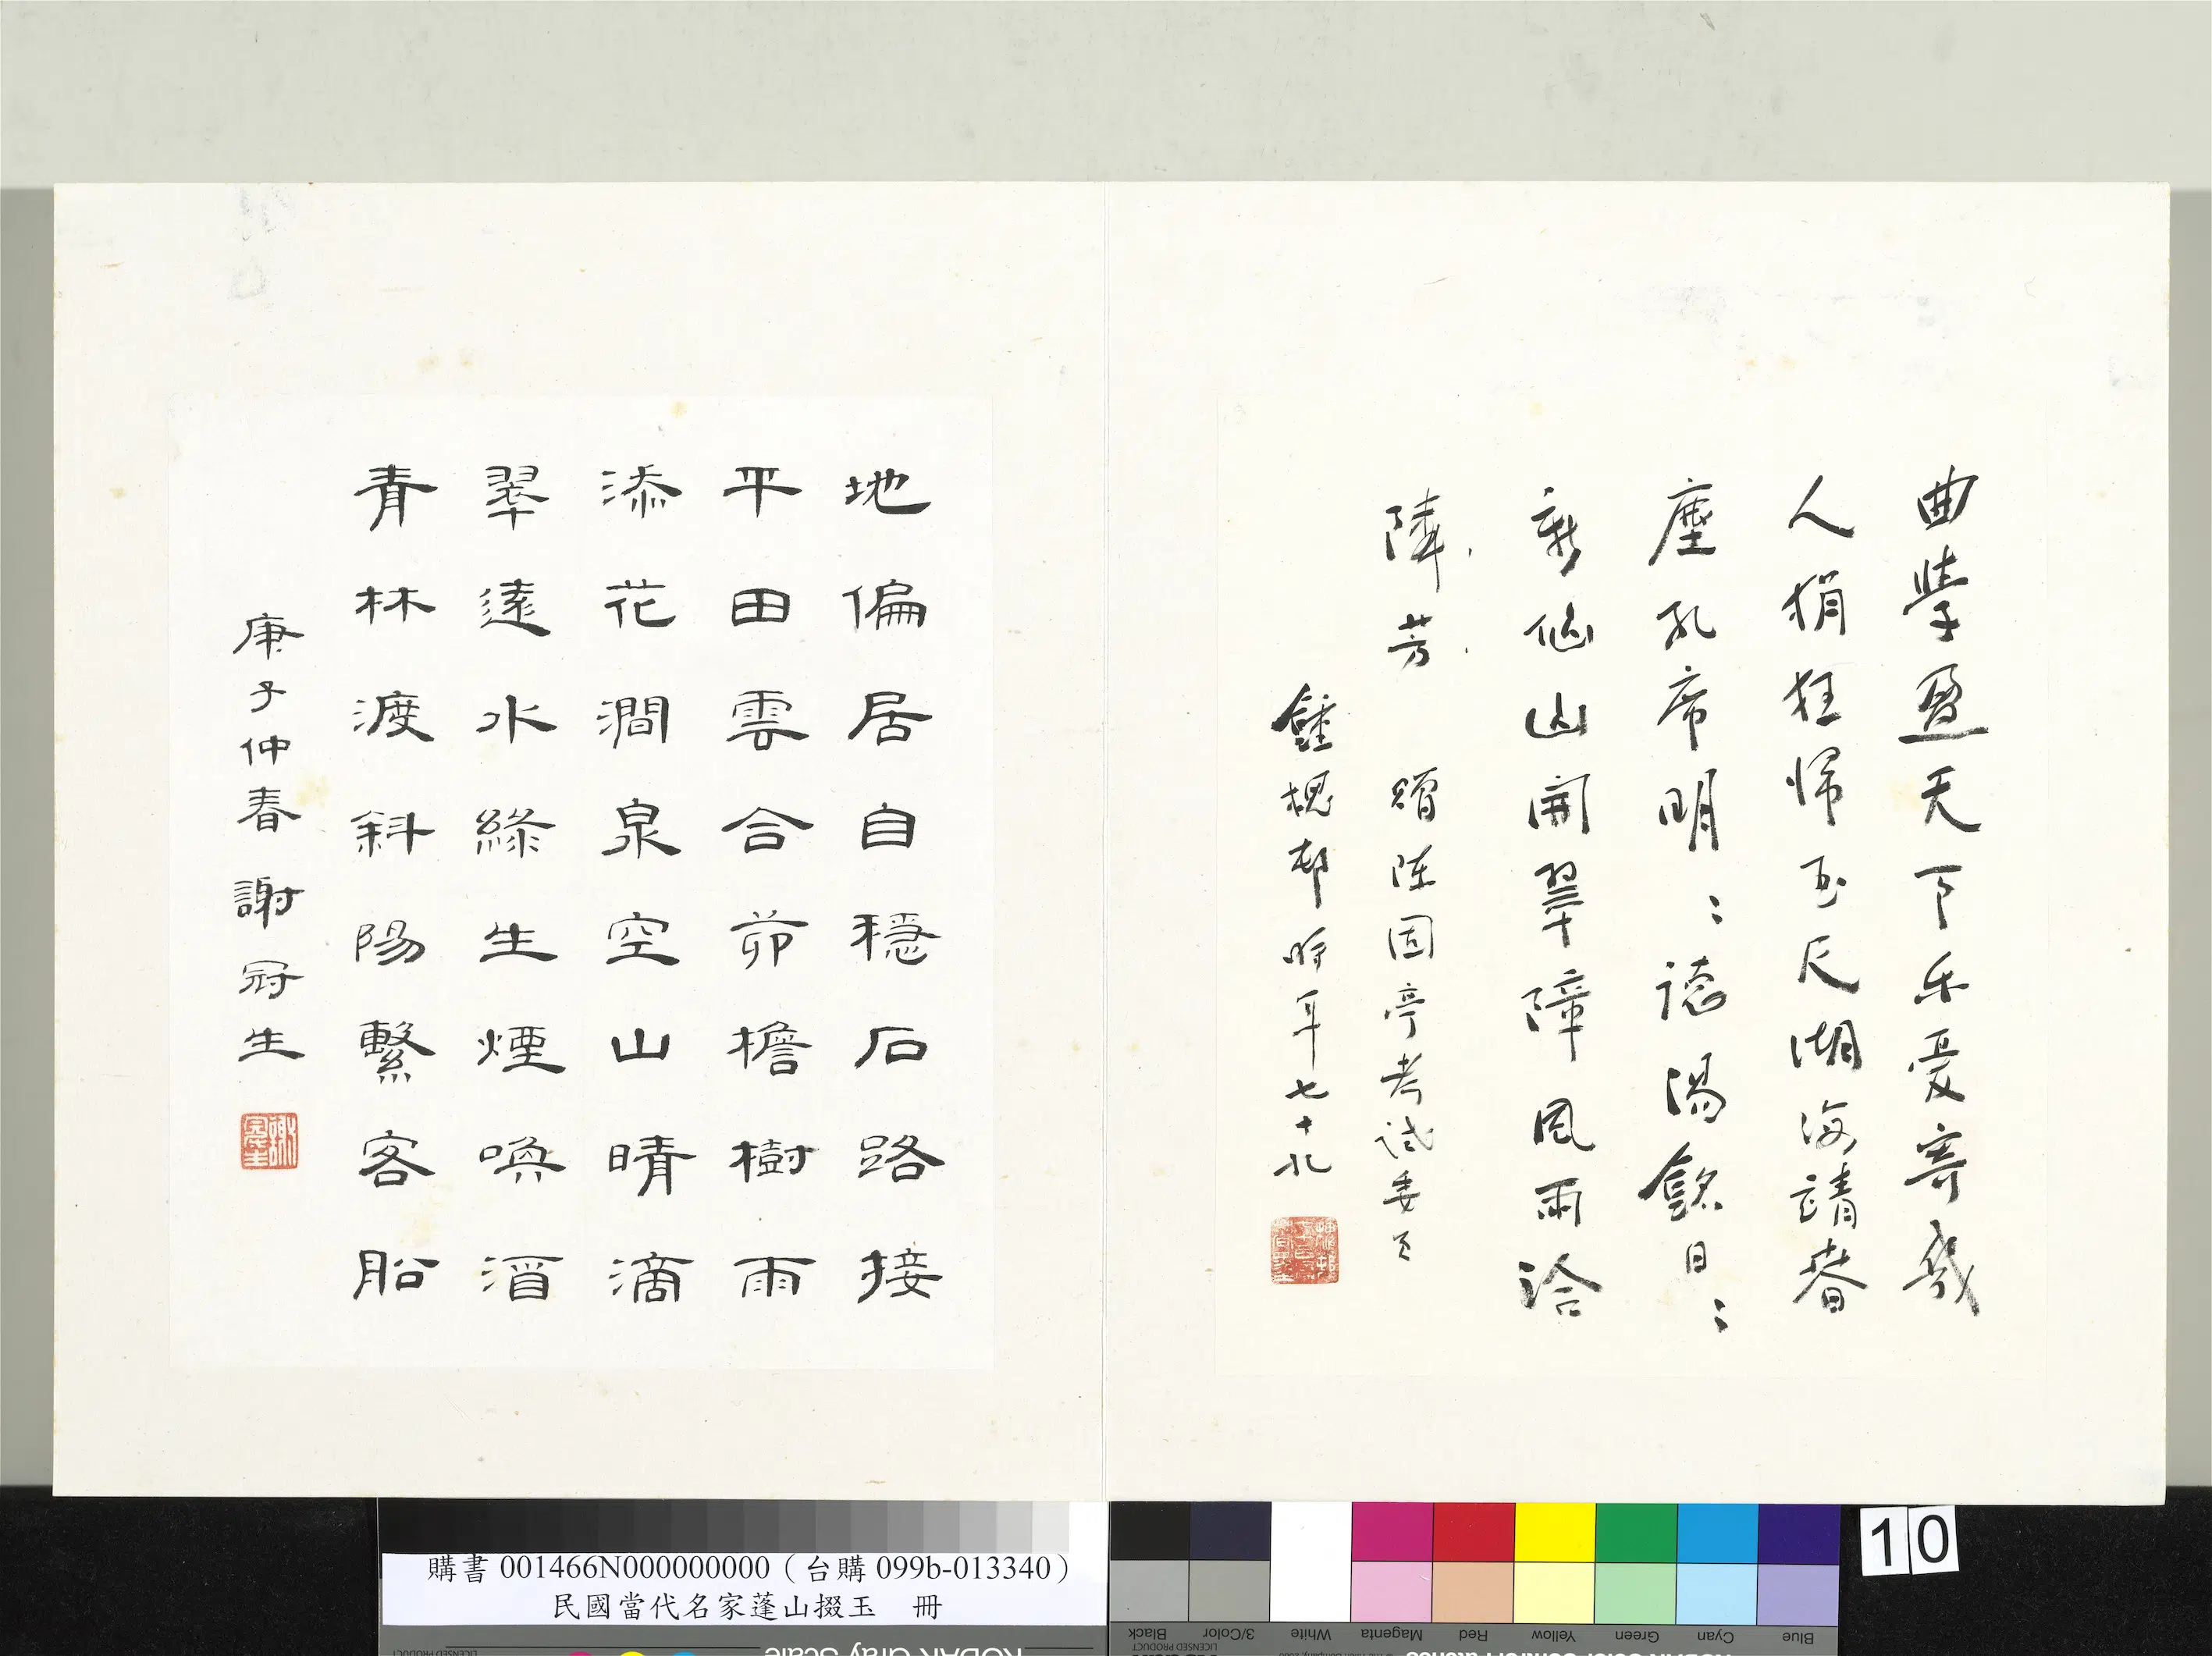 曲學盈天下樂憂寄幾
人狷狂歸孟尺湖海請春
塵孔席明〻德湯銘日〻
新仙山開翠障風雨洽
隣芳 贈陳固亭考試委員
鍾槐村時年七十九
地偏居自穩石路接
平田雲合茆檐樹雨
添花澗泉空山晴滴
翠遠水綠生煙喚酒
青林渡斜陽繫客船
庚子仲春 謝冠生
購書 001466N000000000（台購 099b-013340）
民國當代名家蓬山掇玉 冊
10
Black
3/Color
White
Magenta
Red
Yellow
Green
Cyan
Blue
LICENSED PRODUCT